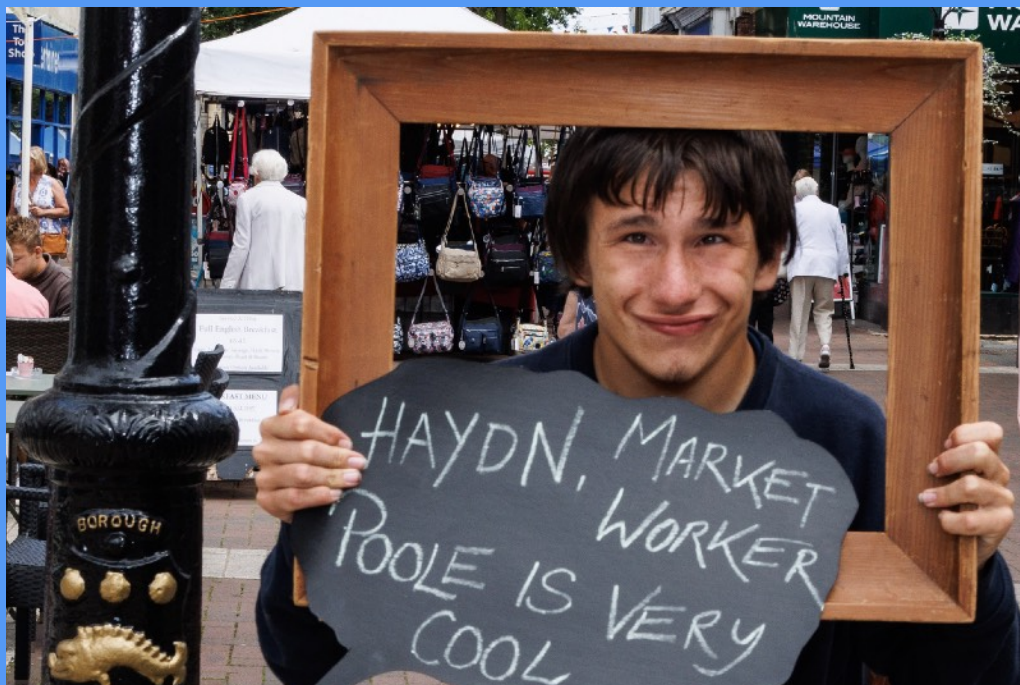 The
Shop
MOUNTAIN
WAREHOUSE
WA
Full English Breakfast
BOROUGH
HAYDN, MARKET
WORKER
POOLE IS VERY
COOL